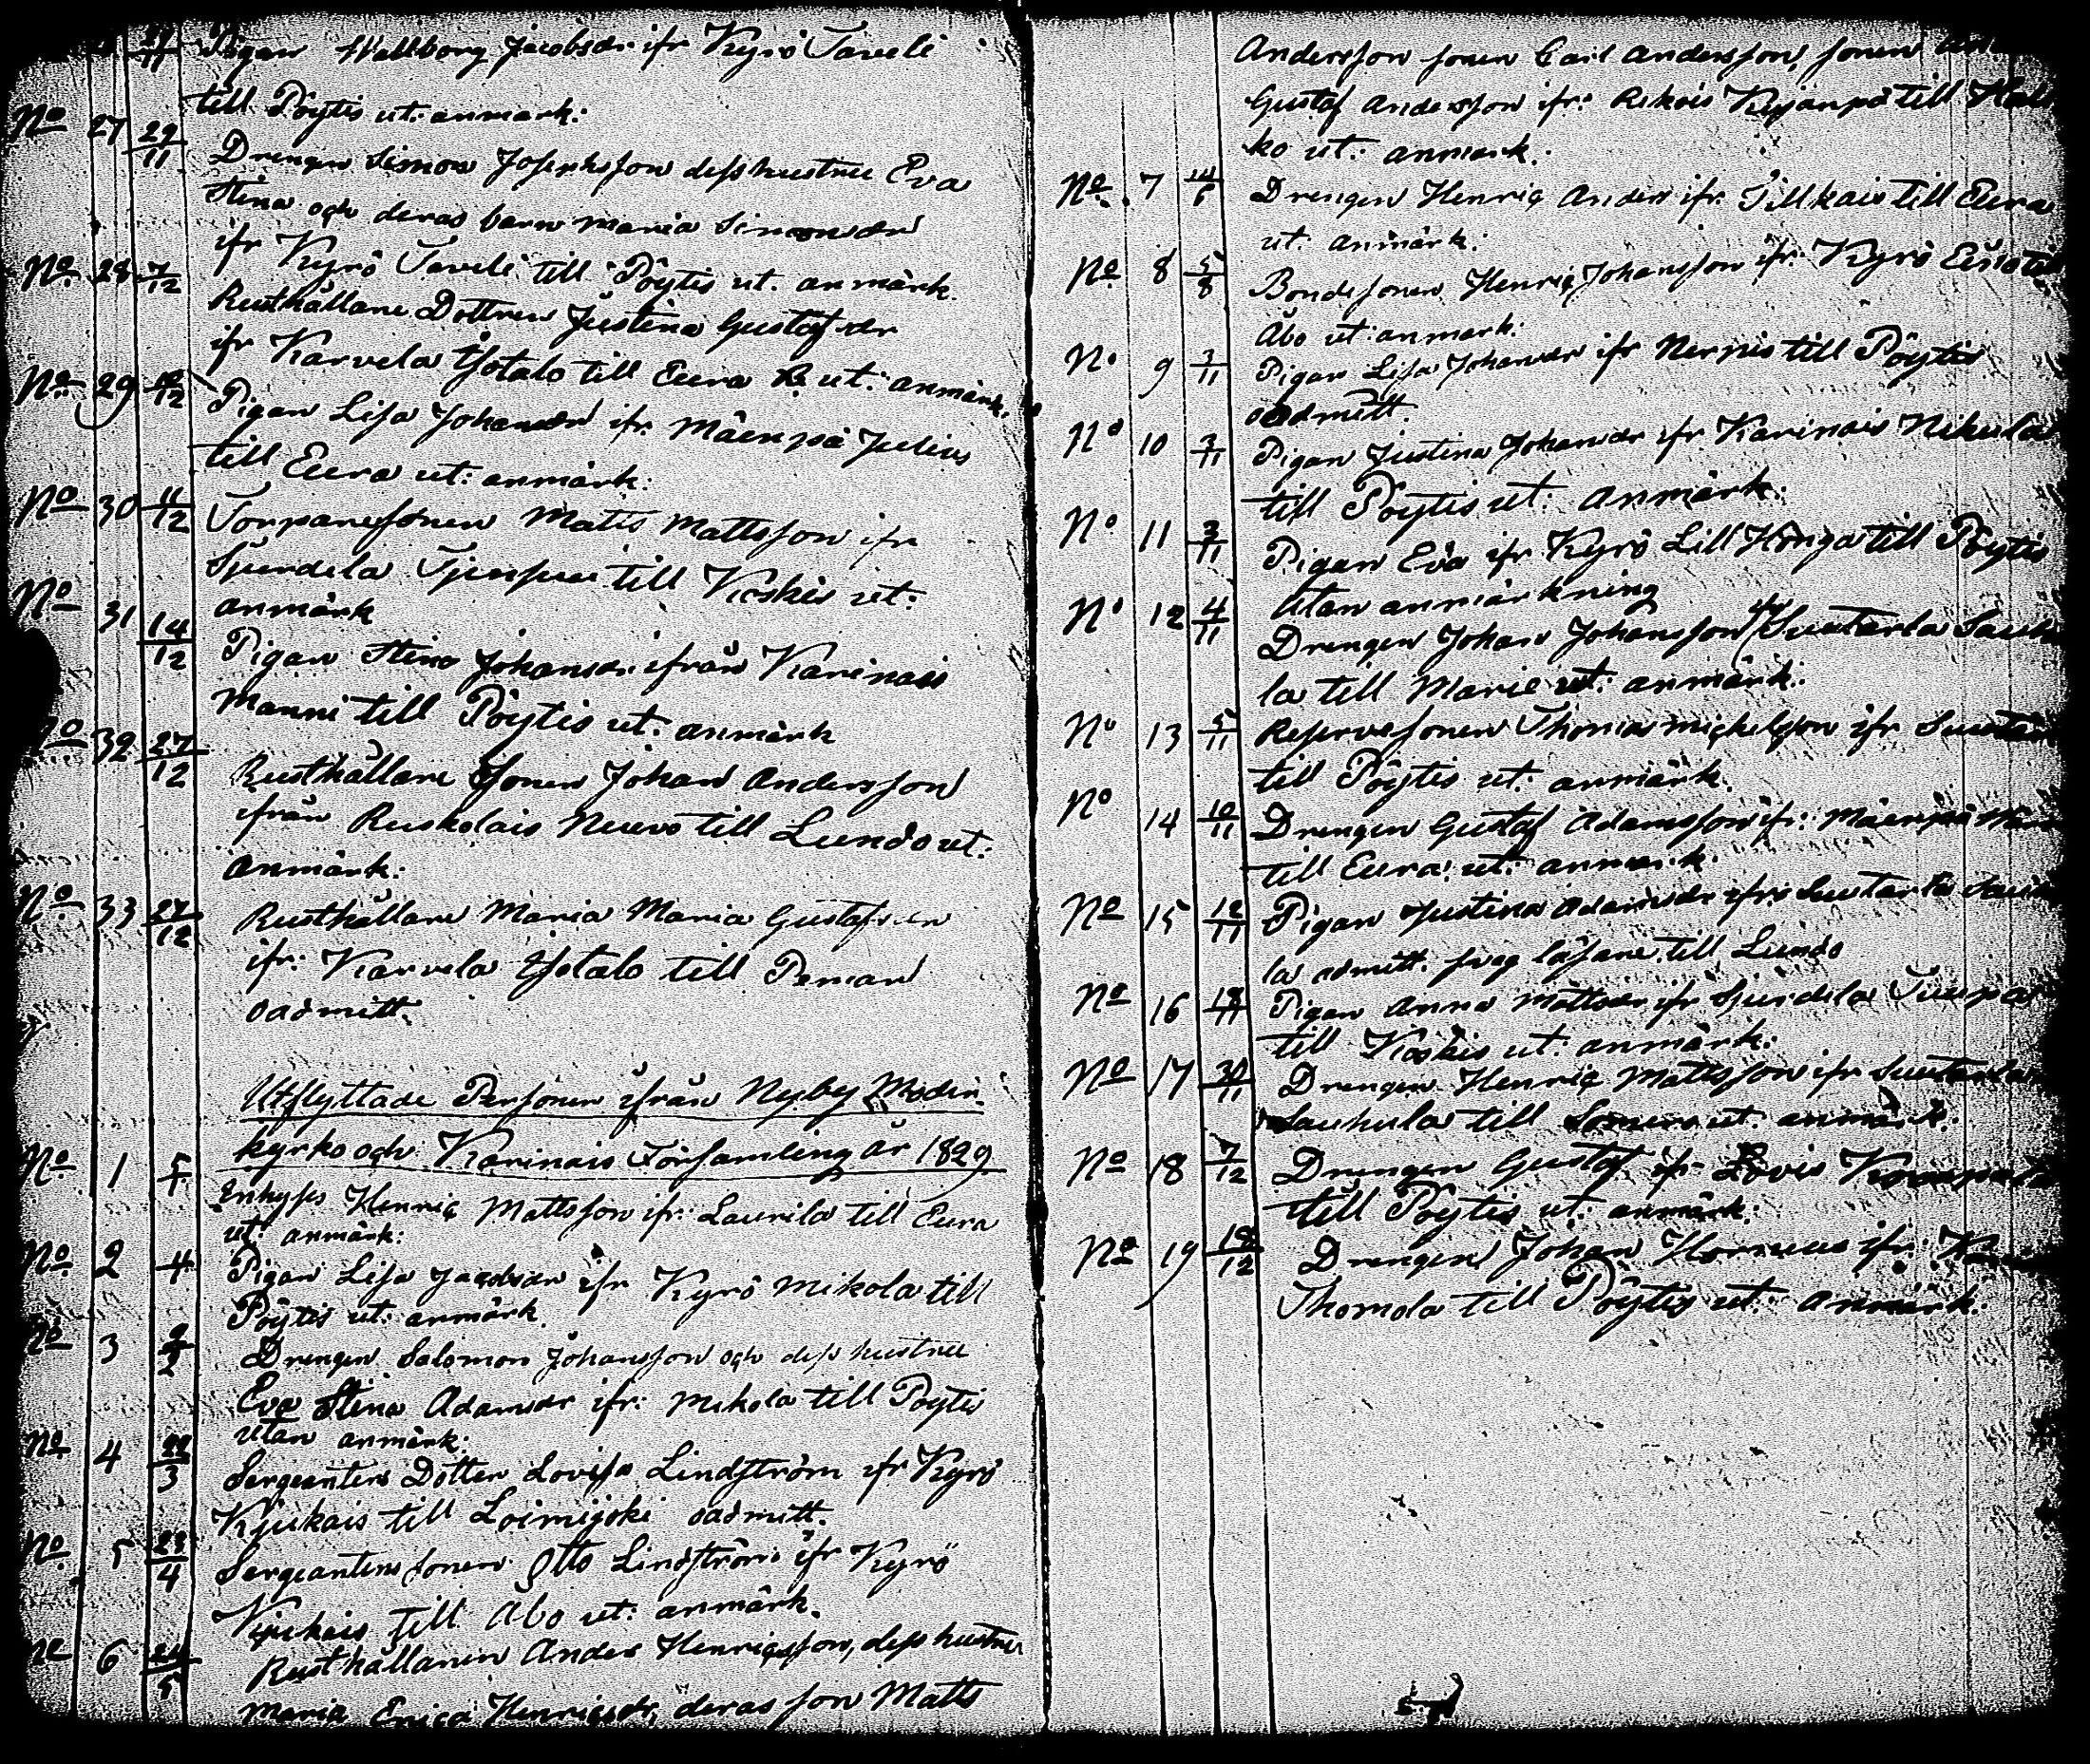 27/11 Pigan Wallborg Jacobsdr. ifr Kyrö Taveli
till Pöytis ut: anmärk:
No 27 29/11 Drengen Simon Josephsson dess hustru Eva
Stina och deras barn Maria Simonsdr
ifr Kyrö Taveli till Pöytis ut. anmärk.
No 28 7/12 Rusthållare Dottren Justina Gustafsdr
ifr Karvela Ystalo till Eura ut: anmärk.
No 29 /12 Pigan Lisa Johansdr ifr. Mäenpä Julius
till Eura ut: anmärk:
No 30 11/12 Torparesonen Matts Mattsson ifr
till Koskis ut:
anmärk
No 31 14/12 Pigan Stina Johansdr. ifrån Karinais
Manni till Pöytis ut: anmärk
No 32 27/12 Rusthållare Sonen Johan Andersson
ifrån Ruskolais till Lundo ut:
anmärk:
No 33 27/12 Rusthållare Maria Maria Gustafs
ifr: Karvela Ystalo till Pemar
oadmitt.
Utflyttade Personer ifrån Nyby Moder
kyrko och Karinais Församling år 1829
No 1 Henriq Mattsson ifr: Laurila till Eura
ut: anmärk:
No 2 4 Pigan Lisa Jacobsdr ifr Kyrö Mikola till
Pöytis ut: anmärk
No 3 2/2 Drengen Salomon Johansson och dess hustru
Eva Stina Adamsdr ifr: Mikola till Pöytis
utan anmärk:
No 4 22/3 Sergeantens Dotter Lovisa Lindström ifr Kyrö
Kjukais till Loimijoki oadmitt.
No 5 22/4 Sergeantens sonen Otto Lindström ifr Kyrö
till Åbo ut: anmärk.
No 6 24/5 Rusthållaren Anders Henriqsson, dess hustru
Maria Erica Henricsdr, deras son Matts
Andersson sonen Carl Andersson, sonen
Gustaf Andersson ifr: Rekois Kujanpä till
ko ut: anmärk:
No 7 /6 Drengen Henriq Anders ifr. till Eura
ut: anmärk:
No 8 5/8 Bondesonen Henriq Johansson ifr: Kyrö
Åbo ut: anmärk:
No 9 3/11 Pigan Lisa Johansdr ifr till Pöytis
oadmitt.
No 10 3/11 Pigan Justina Johansdr ifr Karinais Nikula
till Pöytis ut: anmärk:
No 11 3/11 Pigan Eva ifr Kyrö Lill Hånga till Pöytis
Utan anmärkning
No 12 4/11 Drengen Johan Johansson ifr Suutarla
la till Marie ut: anmärk:
No 13 5/11 Reservesonen Thomas Michelsson ifr
till Pöytis ut: anmärk.
No 14 10/11 Drengen Gustaf Adamsson ifr: Mäenpä
till Eura ut: anmärk.
No 15 12/11 Pigan Justina Adamsdr ifr: Suutarla
la admitt. till Lundo
No 16 /11 Pigan Anna Mattsdr ifr
till Koskis ut: anmärk:
No 17 30/11 Drengen Henriq Mattsson ifr Suutarla
Sauhula till Somero ut: anmärk:
No 18 7/12 Drengen Gustaf ifr
till Pöytis ut: anmärk:
No 19 /12 Drengen Johan ifr:
Thomola till Pöytis ut: anmärk: